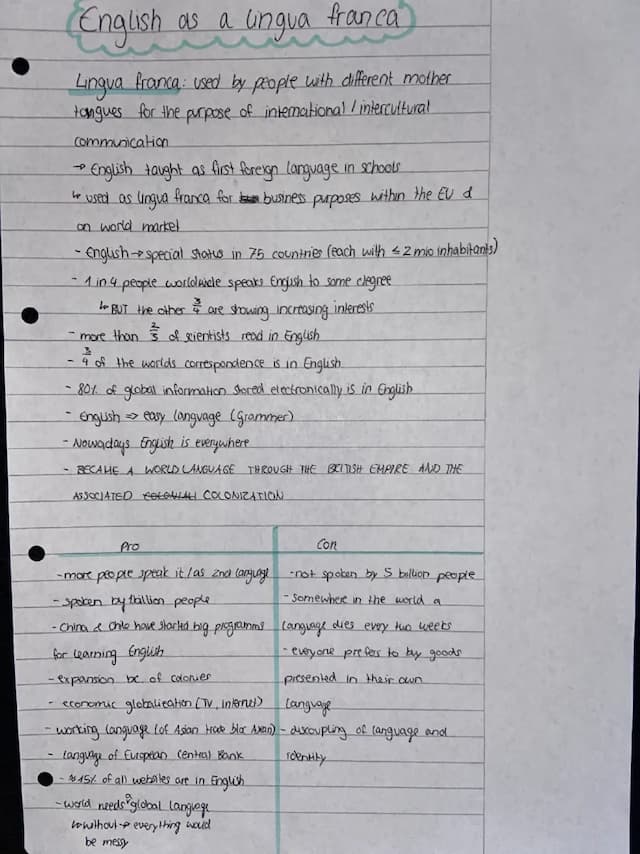 English as a lingua franca
Lingua franca: used by people with different mother
tongues for the purpose of international / intercultural
communication
→ English taught as first foreign language in schools
↳ used as lingua franca for business purposes within the EU &
on world market
- English → special status in 75 countries (each with ≤ 2 mio inhabitants)
- 1 in 4 people worldwide speaks English to some degree
↳ BUT the other 3/4 are showing increasing interests
- more than 2/3 of scientists read in English
- 3/4 of the worlds correspondence is in English
- 80% of global information stored electronically is in English
- English => easy language (Grammer)
- Nowadays English is everywhere
- BECAME A WORLD LANGUAGE THROUGH THE BRITISH EMPIRE AND THE
ASSOCIATED COLONIZATION
Pro
- more people speak it / as 2nd language
- spoken by 1 billion people
- China & Chile have started big programms
for learning English
- expansion bc of colonies
- economic globalization (TV, internet)
- working language (of Asian trade bloc
- language of European Central Bank
- 45% of all websites are in English
- world needs a global language
↳ without → everything would
be messy
Con
- not spoken by 5 billion people
- somewhere in the world a
language dies every two weeks
- everyone prefers to by goods
presented in their own
language
- discoupling of language and
identity